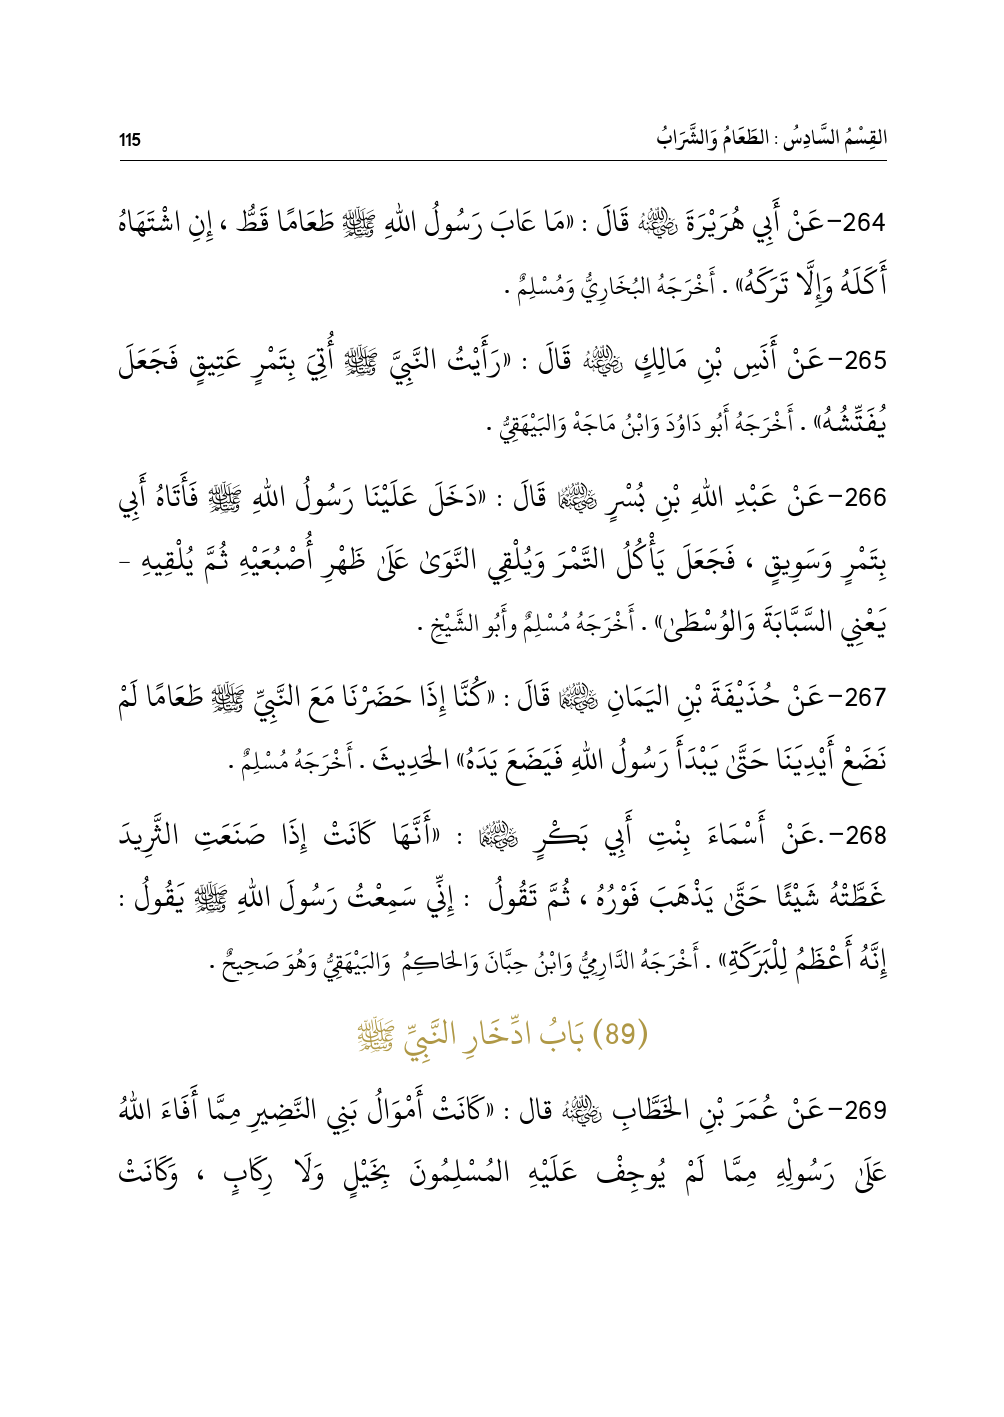 القِسْمُ السَّادِسُ : الطَعَامُ وَالشَّرَابُ 115
264-عَنْ أَبِي هُرَيْرَةَ رضي الله عنه قَالَ : «مَا عَابَ رَسُولُ اللهِ ﷺ طَعَامًا قَطُّ ، إِنِ اشْتَهَاهُ
أَكَلَهُ وَإِلَّا تَرَكَهُ» . أَخْرَجَهُ البُخَارِيُّ وَمُسْلِمٌ .
265-عَنْ أَنَسِ بْنِ مَالِكٍ رضي الله عنه قَالَ : «رَأَيْتُ النَّبِيَّ ﷺ أُتِيَ بِتَمْرٍ عَتِيقٍ فَجَعَلَ
يُفَتِّشُهُ» . أَخْرَجَهُ أَبُو دَاوُدَ وَابْنُ مَاجَهْ وَالبَيْهَقِيُّ .
266-عَنْ عَبْدِ اللهِ بْنِ بُسْرٍ رضي الله عنهما قَالَ : «دَخَلَ عَلَيْنَا رَسُولُ اللهِ ﷺ فَأَتَاهُ أَبِي
بِتَمْرٍ وَسَوِيقٍ ، فَجَعَلَ يَأْكُلُ التَّمْرَ وَيُلْقِي النَّوَىٰ عَلَىٰ ظَهْرِ أُصْبُعَيْهِ ثُمَّ يُلْقِيهِ –
يَعْنِي السَّبَّابَةَ وَالوُسْطَىٰ» . أَخْرَجَهُ مُسْلِمٌ وأَبُو الشَّيْخِ .
267-عَنْ حُذَيْفَةَ بْنِ اليَمَانِ رضي الله عنهما قَالَ : «كُنَّا إِذَا حَضَرْنَا مَعَ النَّبِيِّ ﷺ طَعَامًا لَمْ
نَضَعْ أَيْدِيَنَا حَتَّىٰ يَبْدَأَ رَسُولُ اللهِ فَيَضَعَ يَدَهُ» الحَدِيثَ . أَخْرَجَهُ مُسْلِمٌ .
268-.عَنْ أَسْمَاءَ بِنْتِ أَبِي بَكْرٍ رضي الله عنهما : «أَنَّهَا كَانَتْ إِذَا صَنَعَتِ الثَّرِيدَ
غَطَّتْهُ شَيْئًا حَتَّىٰ يَذْهَبَ فَوْرُهُ ، ثُمَّ تَقُولُ : إِنِّي سَمِعْتُ رَسُولَ اللهِ ﷺ يَقُولُ :
إِنَّهُ أَعْظَمُ لِلْبَرَكَةِ» . أَخْرَجَهُ الدَّارِمِيُّ وَابْنُ حِبَّانَ وَالحَاكِمُ وَالبَيْهَقِيُّ وَهُوَ صَحِيحٌ .
(89) بَابُ ادِّخَارِ النَّبِيِّ ﷺ
269-عَنْ عُمَرَ بْنِ الخَطَّابِ رضي الله عنه قال : «كَانَتْ أَمْوَالُ بَنِي النَّضِيرِ مِمَّا أَفَاءَ اللهُ
عَلَىٰ رَسُولِهِ مِمَّا لَمْ يُوجِفْ عَلَيْهِ المُسْلِمُونَ بِخَيْلٍ وَلَا رِكَابٍ ، وَكَانَتْ